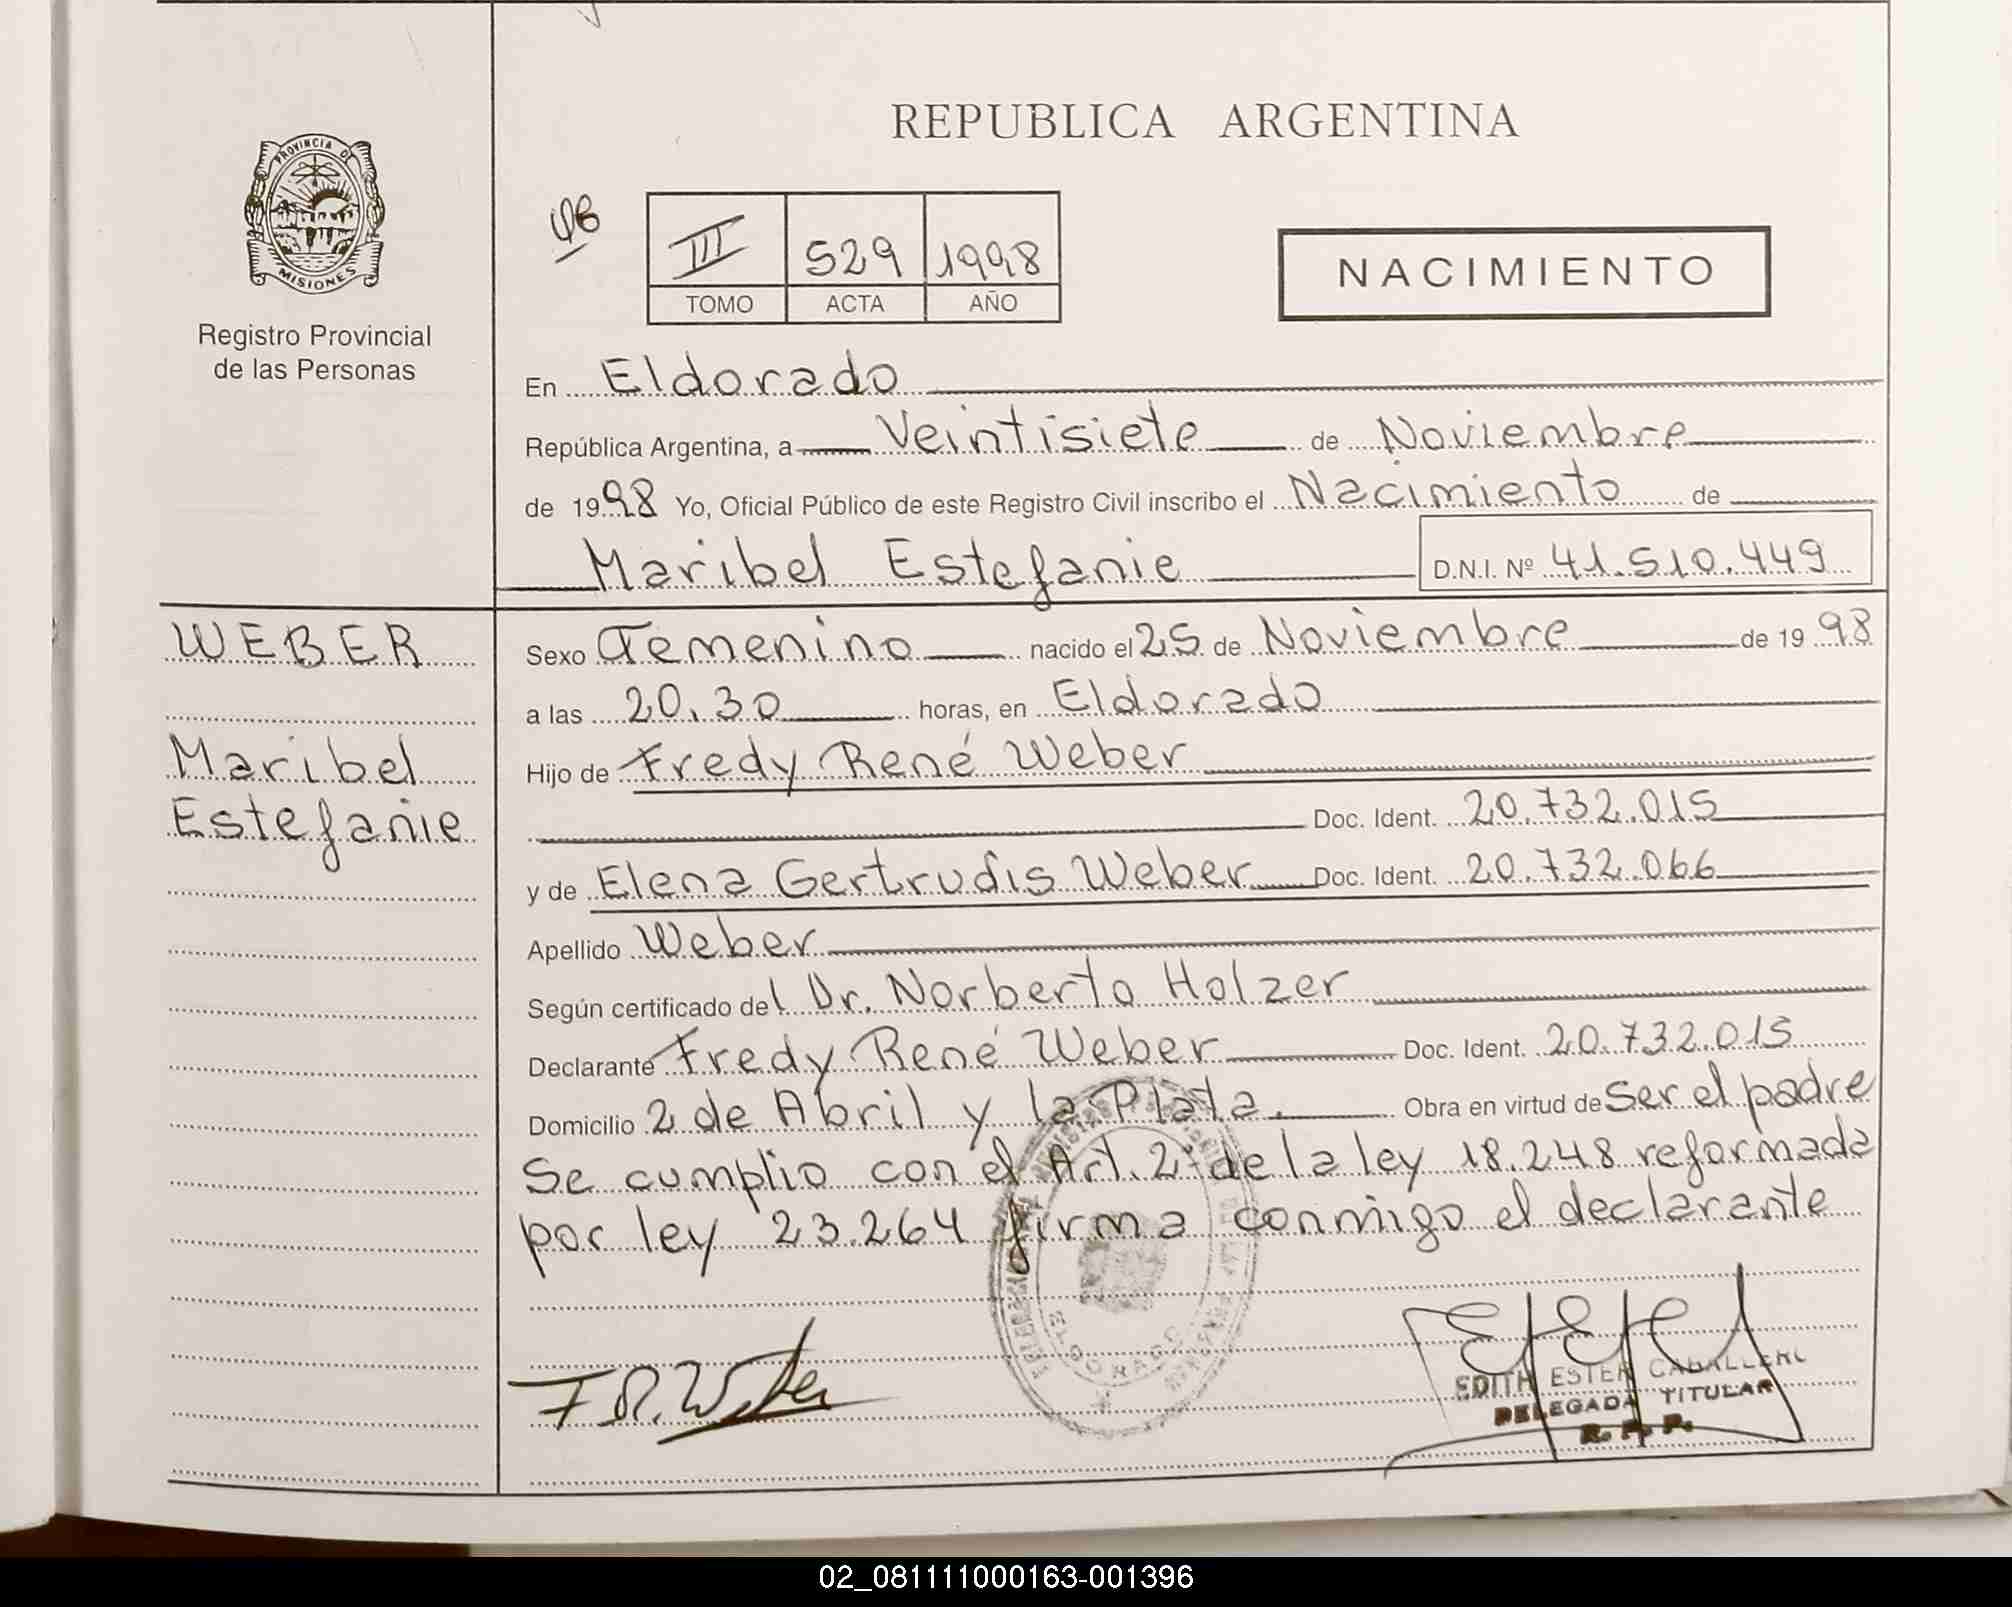 REPUBLICA ARGENTINA
PROVINCIA DE
MISIONES
Registro Provincial
de las Personas
III 529 1998
TOMO ACTA AÑO
NACIMIENTO
En Eldorado
República Argentina, a Veintisiete de Noviembre
de 1998 Yo, Oficial Público de este Registro Civil inscribo el Nacimiento de
Maribel Estefanie D.N.I. Nº 41.510.449
WEBER
Maribel
Estefanie
Sexo Femenino nacido el 25 de Noviembre de 1998
a las 20.30 horas, en Eldorado
Hijo de Fredy René Weber
Doc. Ident. 20.732.015
y de Elena Gertrudis Weber Doc. Ident. 20.732.066
Apellido Weber
Según certificado del Dr. Norberto Holzer
Declarante Fredy René Weber Doc. Ident. 20.732.015
Domicilio 2 de Abril y la Plata. Obra en virtud de Ser el padre
Se cumplio con el Art. 2: de la ley 18.248 reformada
por ley 23.264 firma conmigo el declarante
ELDORADO
F R. Weber
EDITH ESTER CABALLERO
DELEGADA TITULAR
R. P. P.
02_081111000163-001396